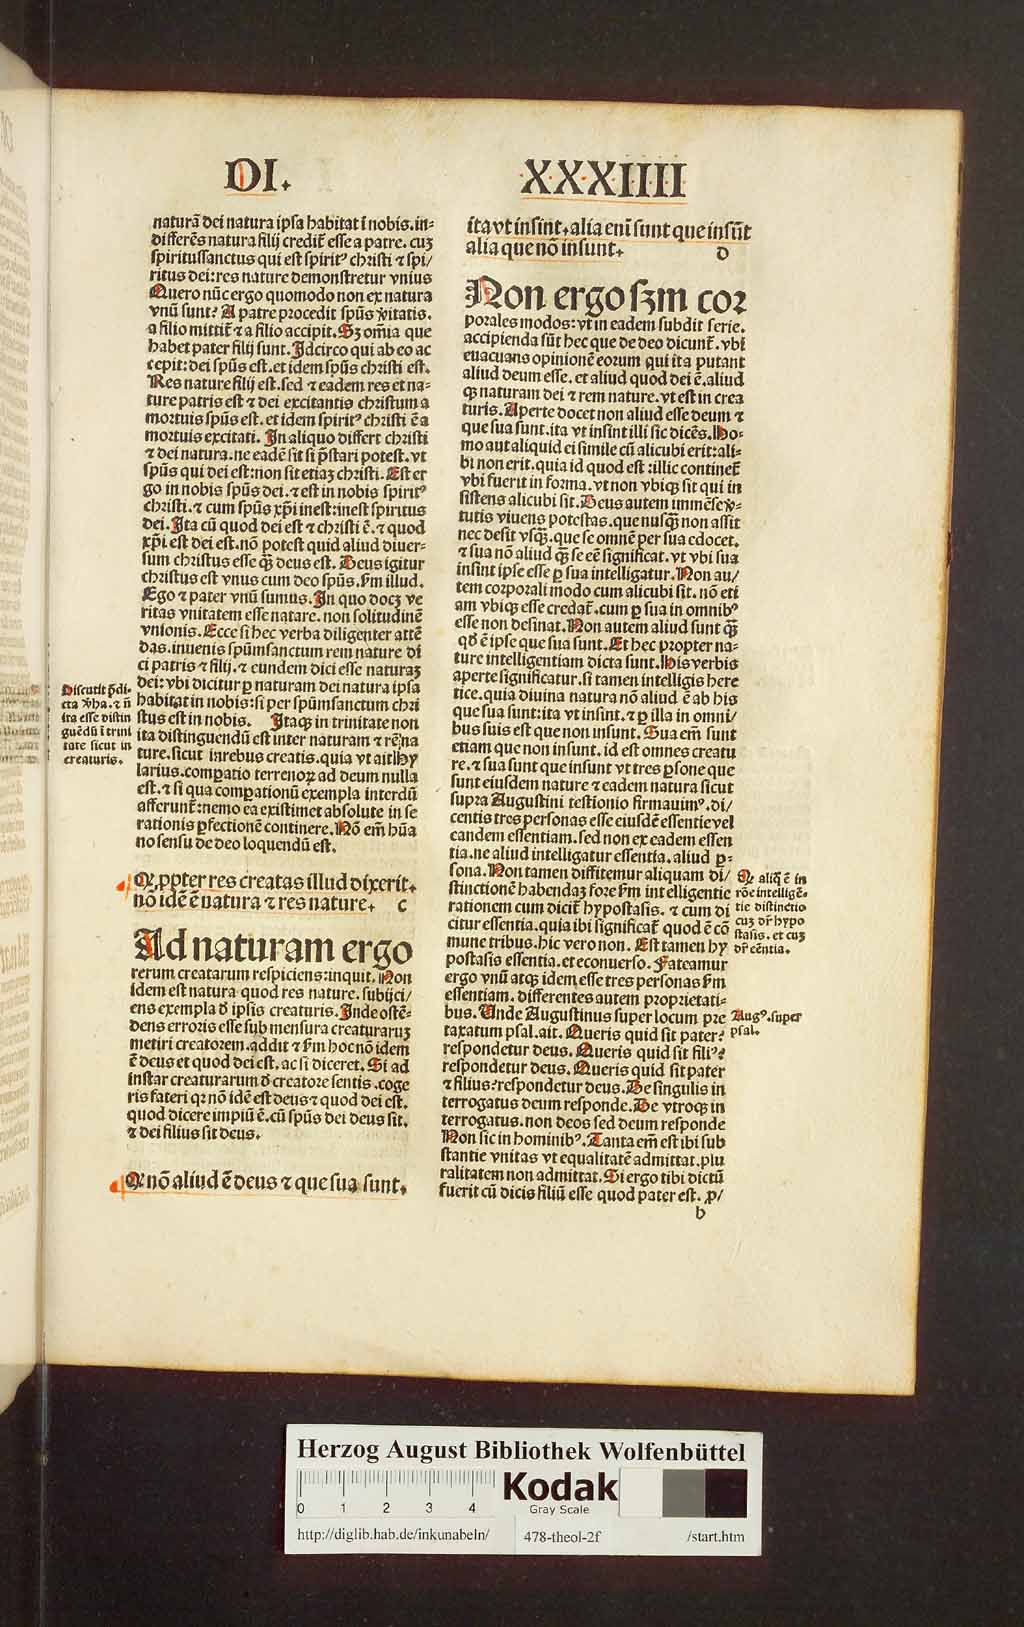 DI.
XXXIIII
naturā dei natura ipsa habitat ī nobis. in-
differēs natura filij credit̄ esse a patre. cuꝫ
spiritussanctus qui est spiritꝰ christi ⁊ spi/
ritus dei: res nature demonstretur vnius
Quero nūc ergo quomodo non ex natura
vnū sunt? A patre procedit spūs v̄itatis.
a filio mittit̄ ⁊ a filio accipit. Sꝫ om̄ia que
habet pater filij sunt. Idcirco qui ab eo ac
cepit: dei spūs est. et idem spūs christi est.
Res nature filij est. sed ⁊ eadem res et na-
ture patris est ⁊ dei excitantis christum a
mortuis spūs est. et idem spiritꝰ christi ē a
mortuis excitati. In aliquo differt christi
⁊ dei natura. ne eadē sit si p̄stari potest. vt
spūs qui dei est: non sit etiaꝫ christi. Est er
go in nobis spūs dei. ⁊ est in nobis spiritꝰ
christi. ⁊ cum spūs xp̄i inest: inest spiritus
dei. Ita cū quod dei est ⁊ christi ē. ⁊ quod
xp̄i est dei est. nō potest quid aliud diuer-
sum christus esse qꝫ̄ deus est. Deus igitur
christus est vnus cum deo spūs. ẜm illud.
Ego ⁊ pater vnū sumus. In quo docꝫ ve
ritas vnitatem esse nature. non solitudinē
vnionis. Ecce si hec verba diligenter attē
das. inuenis spūmsanctum rem nature di
ci patris ⁊ filij. ⁊ eundem dici esse naturaꝫ
dei: vbi dicitur ꝑ naturam dei natura ipsa
habitat in nobis: si per spūmsanctum chri
stus est in nobis. Itaqꝫ in trinitate non
ita distinguendū est inter naturam ⁊ rē na
ture. sicut in rebus creatis. quia vt ait Hy
larius. comparatio terrenoꝝ ad deum nulla
est. ⁊ si qua comparationū exempla interdū
afferunt̄: nemo ea existimet absolute in se
rationis ꝑfectionē continere. Nō em̄ hūa
no sensu de deo loquendū est.
Discutit p̄di-
cta v̄ba. ⁊ nˉ
ita esse distin
guēdū ī trini
tate sicut in
creaturis.
Qꝛ ꝓpter res creatas illud dixerit.
nō idē ē natura ⁊ res nature. c
Ad naturam ergo
rerum creatarum respiciens: inquit. Non
idem est natura quod res nature. subijci/
ens exempla d̄ ipsis creaturis. Inde ostē-
dens erroris esse sub mensura creaturaruꝫ
metiri creatorem. addit ⁊ ẜm hoc nō idem
ē deus et quod dei est. ac si diceret. Si ad
instar creaturarum d̄ creatore sentis. coge
ris fateri qꝛ nō idē est deus ⁊ quod dei est.
quod dicere impiū ē. cū spūs dei deus sit.
⁊ dei filius sit deus.
Qꝛ nō aliud ē deus ⁊ que sua sunt.
ita vt insint. alia enī sunt que insūt
alia que nō insunt. d
Non ergo sꝫm coꝛ
porales modos: vt in eadem subdit serie.
accipienda sūt hec que de deo dicunt̄. vbi
euacuans opinionē eorum qui ita putant
aliud deum esse. et aliud quod dei ē. aliud
qꝫ naturam dei ⁊ rem nature. vt est in crea
turis. Aperte docet non aliud esse deum ⁊
que sua sunt. ita vt insint illi sic dicēs. Ho-
mo aut aliquid ei simile cū alicubi erit: ali-
bi non erit. quia id quod est: illic continet̄
vbi fuerit in forma. vt non vbiqꝫ sit qui in
sistens alicubi sit. Deus autem immēse v̄-
tutis viuens potestas. que nusqꝫ̄ non assit
nec desit vsqꝫ̄. que se omnē per sua edocet.
⁊ sua nō aliud qꝫ̄ se eē significat. vt vbi sua
insint ipse esse ꝑ sua intelligatur. Non au/
tem corporali modo cum alicubi sit. nō eti
am vbiqꝫ esse credat̄. cum ꝑ sua in omnibꝰ
esse non desinat. Non autem aliud sunt qꝫ̄
qd̄ ē ipse que sua sunt. Et hec propter na-
ture intelligentiam dicta sunt. His verbis
aperte significatur. si tamen intelligis here
tice. quia diuina natura nō aliud ē ab his
que sua sunt: ita vt insint. ⁊ ꝑ illa in omni/
bus suis est que non insunt. Sua em̄ sunt
etiam que non insunt. id est omnes creatu
re. ⁊ sua sunt que insunt vt tres ꝑsone que
sunt eiusdem nature ⁊ eadem natura sicut
supra Augustini testionio firmauimꝰ. di/
centis tres personas esse eiusdē essentie vel
eandem essentiam. sed non ex eadem essen
tia. ne aliud intelligatur essentia. aliud ꝑ-
sona. Non tamen diffitemur aliquam di/
stinctionē habendaꝫ fore ẜm intelligentie
rationem cum dicit̄ hypostasis. ⁊ cum di
citur essentia. quia ibi significat̄ quod ē cō
mune tribus. hic vero non. Est tamen hy
postasis essentia. et econuerso. Fateamur
ergo vnū atqꝫ idem esse tres personas ẜm
essentiam. differentes autem proprietati-
bus. Unde Augustinus super locum pre
taxatum psal. ait. Queris quid sit pater?
respondetur deus. Queris quid sit filiꝰ?
respondetur deus. Queris quid sit pater
⁊ filius? respondetur deus. De singulis in
terrogatus deum responde. De vtroqꝫ in
terrogatus. non deos sed deum responde
Non sic in hominibꝰ. Tanta em̄ est ibi sub
stantie vnitas vt equalitatē admittat. plu
ralitatem non admittat. Si ergo tibi dictū
fuerit cū dicis filiū esse quod pater est. ꝓ/
b
Qꝛ aliqꝫ ē in
rōe intelligē-
tie distinctio
cuꝫ dr̄ hypo
stasis. et cuꝫ
dr̄ eēntia.
Augꝰ. super
psal.
Herzog August Bibliothek Wolfenbüttel
0 1 2 3 4
Kodak
Gray Scale
http://diglib.hab.de/inkunabeln/
478-theol-2f
/start.htm